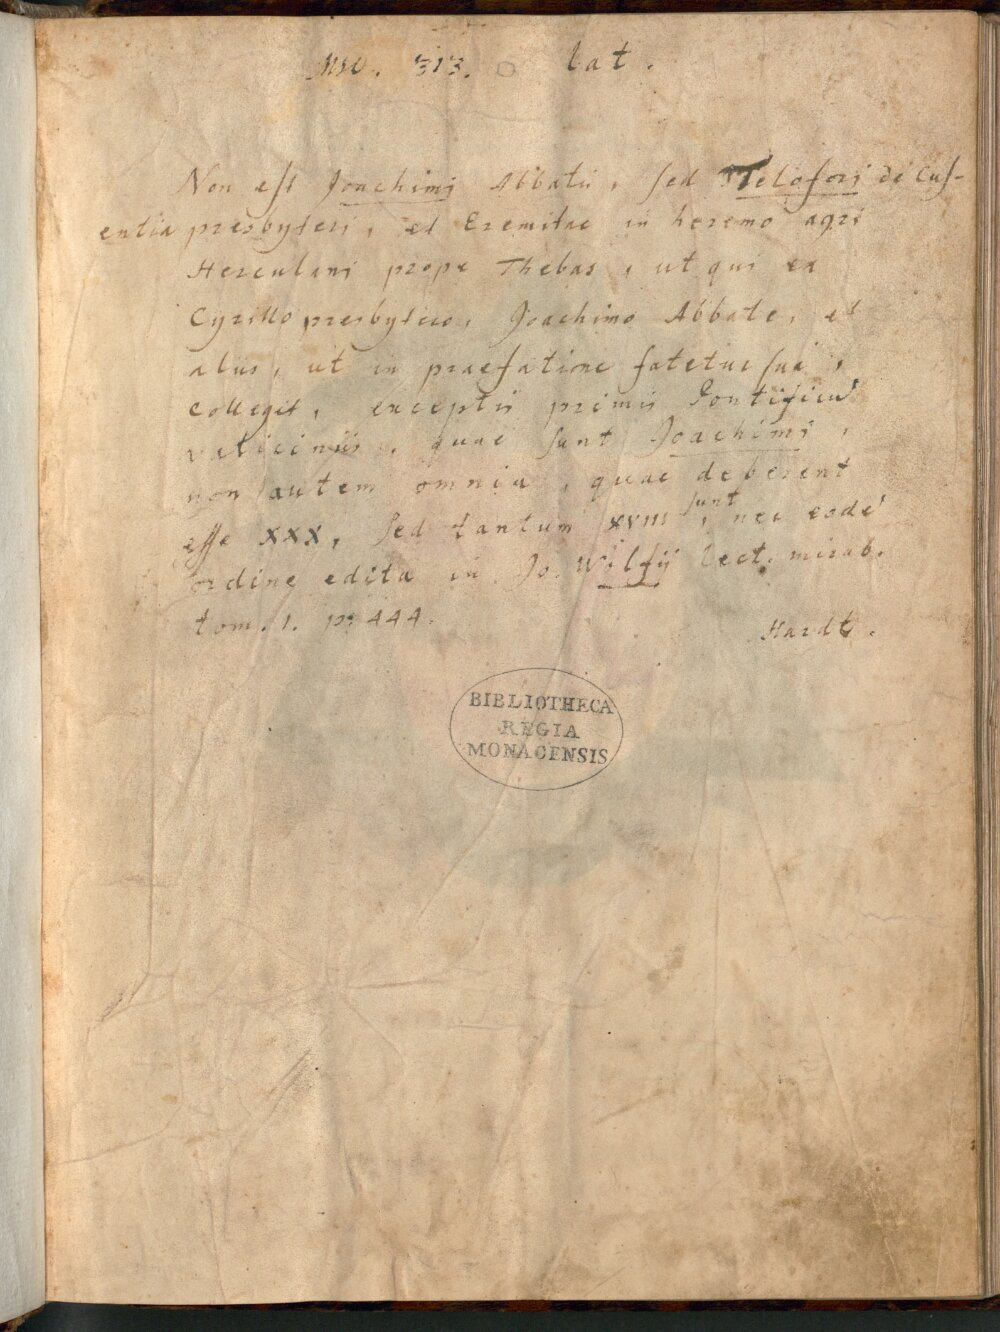 Msc. 313. lat.
Non est Joachimi Abbatis, sed Telofori de Cus-
entia presbyteri, et Eremitae in heremo agri
Herculani prope Thebas, ut qui ex
Cyrillo presbytero, Joachimo Abbate, et
aliis, ut in praefatione fatetur sua,
collegit, exceptis primis Pontificū
vaticiniis, quae sunt Joachimi,
non autem omnia, quae deberent
esse XXX, sed tantum XVIII sunt, nec eodē
ordine edita in Jo. Wolfii lect. mirab.
tom. 1. p. 444.
Hardt.
BIBLIOTHECA
REGIA
MONACENSIS